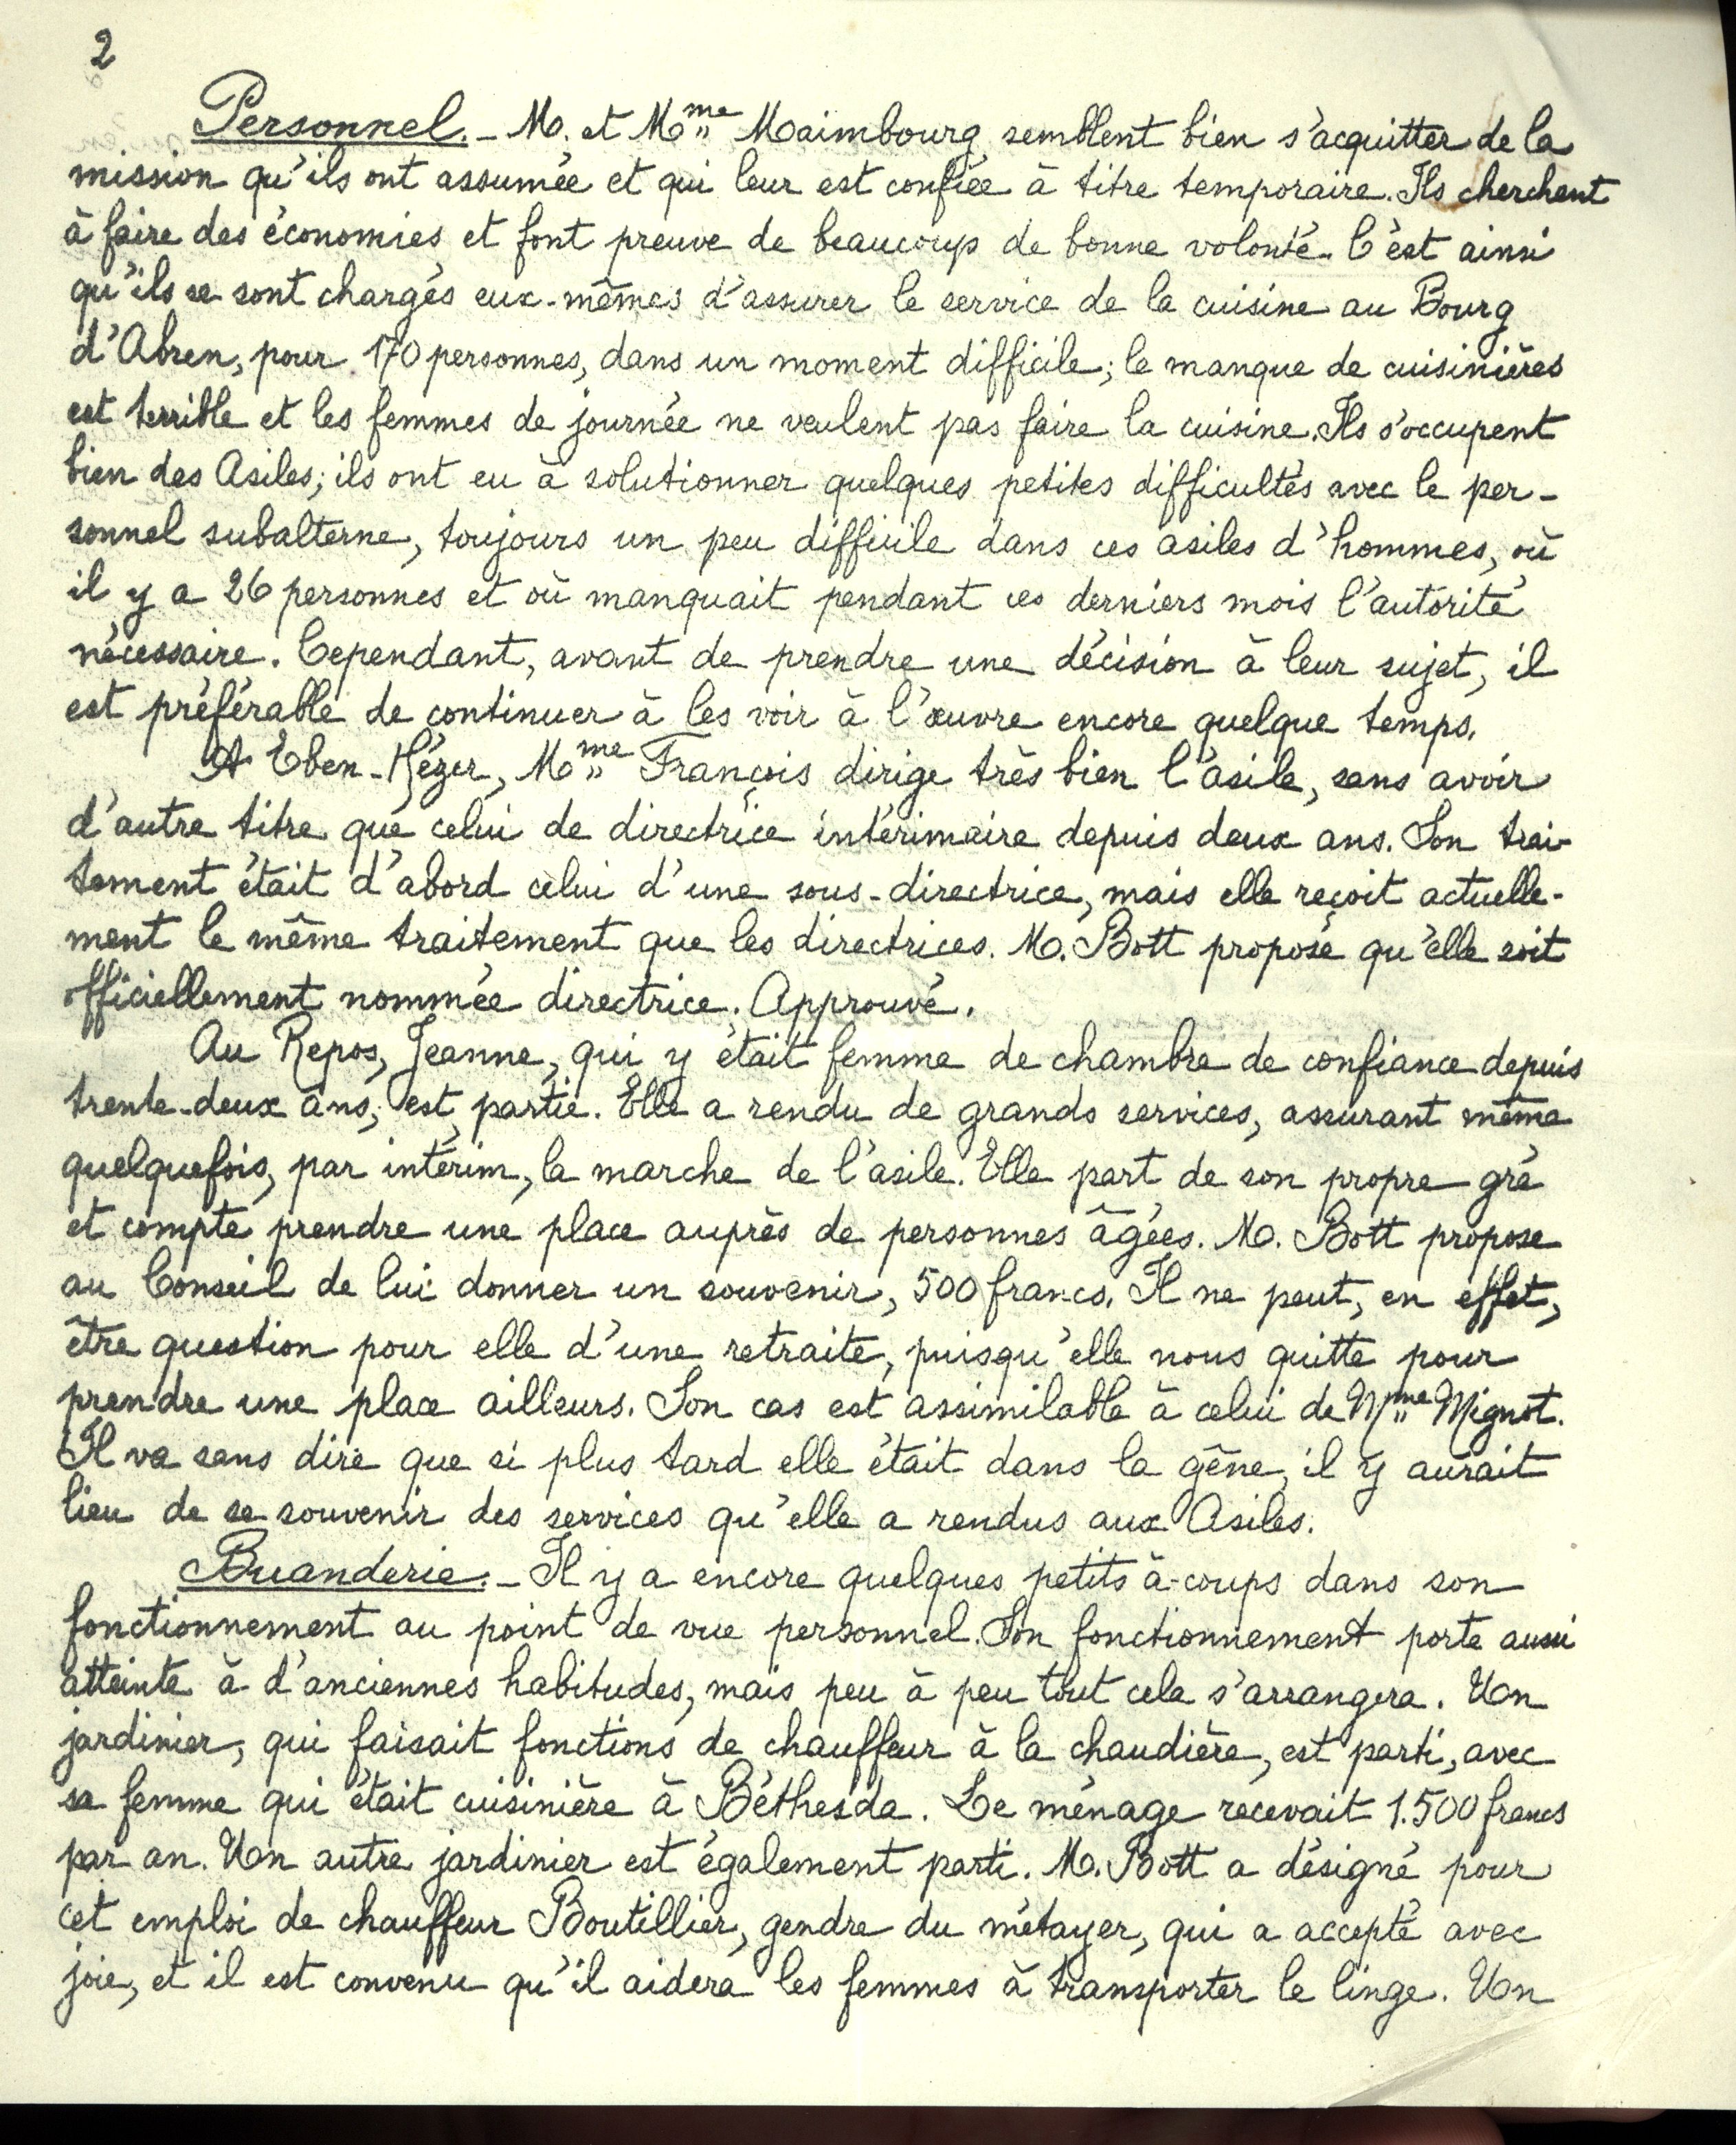 2
Personnel. - M. et Mme Maimbourg semblent bien s'acquitter de la
mission qu'ils ont assumée et qui leur est confiée à titre temporaire. Ils cherchent
à faire des économies et font preuve de beaucoup de bonne volonté. C'est ainsi
qu'ils se sont chargés eux-mêmes d'assurer le service de la cuisine au Bourg
d'Abren, pour 170 personnes, dans un moment difficile; le manque de cuisinières
est terrible et les femmes de journée ne veulent pas faire la cuisine. Ils s'occupent
bien des Asiles; ils ont eu à solutionner quelques petites difficultés avec le per-
sonnel subalterne, toujours un peu difficile dans ces asiles d'hommes, où
il y a 26 personnes et où manquait pendant ces derniers mois l'autorité
nécessaire. Cependant, avant de prendre une décision à leur sujet, il
est préférable de continuer à les voir à l'œuvre encore quelque temps.
A Eben-Hézer, Mme François dirige très bien l'asile, sans avoir
d'autre titre que celui de directrice intérimaire depuis deux ans. Son trai-
tement était d'abord celui d'une sous-directrice, mais elle reçoit actuelle-
ment le même traitement que les directrices. M. Bott propose qu'elle soit
officiellement nommée directrice. Approuvé.
Au Repos, Jeanne, qui y était femme de chambre de confiance depuis
trente-deux ans, est partie. Elle a rendu de grands services, assurant même
quelquefois, par intérim, la marche de l'asile. Elle part de son propre gré
et compte prendre une place auprès de personnes âgées. M. Bott propose
au Conseil de lui donner un souvenir, 500 francs. Il ne peut, en effet,
être question pour elle d'une retraite, puisqu'elle nous quitte pour
prendre une place ailleurs. Son cas est assimilable à celui de Mme Mignot.
Il va sans dire que si plus tard elle était dans la gêne, il y aurait
lieu de se souvenir des services qu'elle a rendus aux Asiles.
Buanderie. - Il y a encore quelques petits à-coups dans son
fonctionnement au point de vue personnel. Son fonctionnement porte aussi
atteinte à d'anciennes habitudes, mais peu à peu tout cela s'arrangera. Un
jardinier, qui faisait fonctions de chauffeur à la chaudière, est parti, avec
sa femme qui était cuisinière à Béthesda. Le ménage recevait 1.500 francs
par an. Un autre jardinier est également parti. M. Bott a désigné pour
cet emploi de chauffeur Boutillier, gendre du métayer, qui a accepté avec
joie, et il est convenu qu'il aidera les femmes à transporter le linge. Un